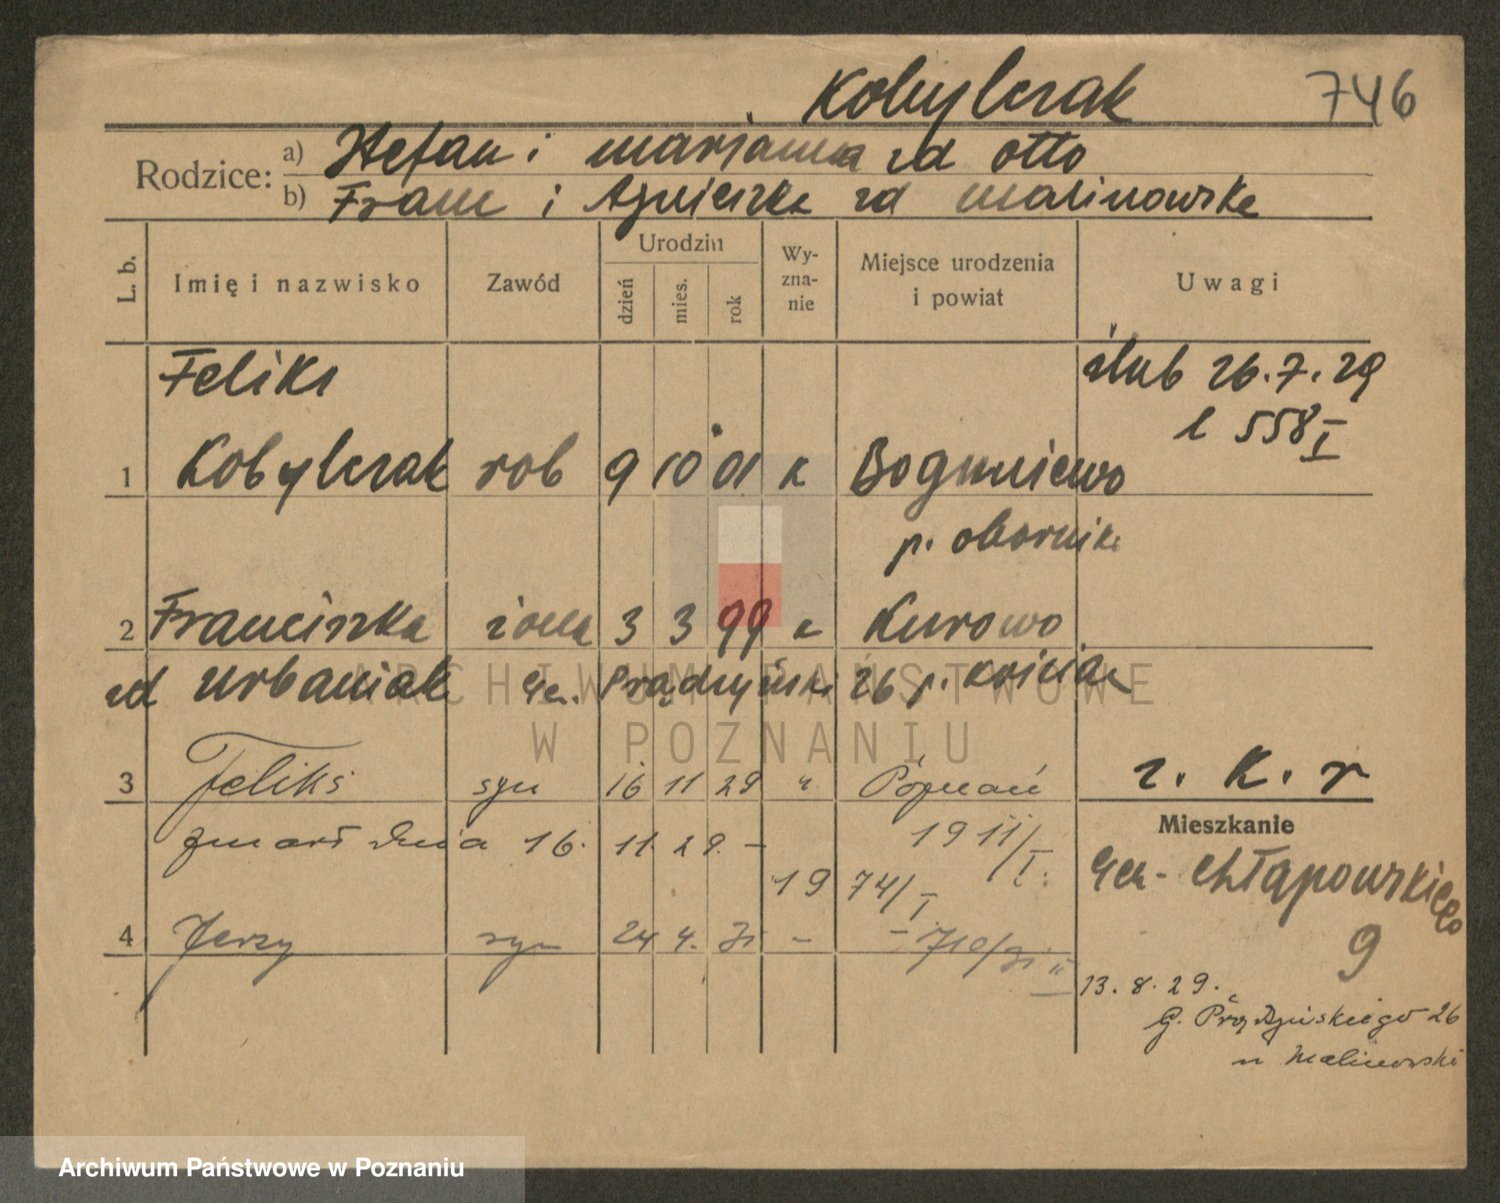 Kobylczak 746
Rodzice: a) Stefan i Marianna zd Otto
b) Franc i Agnieszka zd Malinowska
L. b. Imię i nazwisko Zawód Urodzin dzień mies. rok Wyznanie Miejsce urodzenia i powiat Uwagi
Feliks ślub 26.7.29
l 558 I
1 Kobylczak rob 9 10 01 k Boguniewo
p. Obornik
2 Franciszka żona 3 3 99 k Kurowo
zd Urbaniak Gen. Prądzyński 26 p. Kościan
ARCHIWUM PAŃSTWOWE
W POZNANIU
3 Feliks syn 16 11 29 " Poznań z. K. r
zmarł dnia 16. 11. 29. – 1911/I
Mieszkanie
1974/I. Gen. Chłapowskiego
4 Jerzy syn 24 4. 31 – – 710/31 II 9
13. 8. 29.
G. Prądzyńskiego 26
u Malinowski
Archiwum Państwowe w Poznaniu